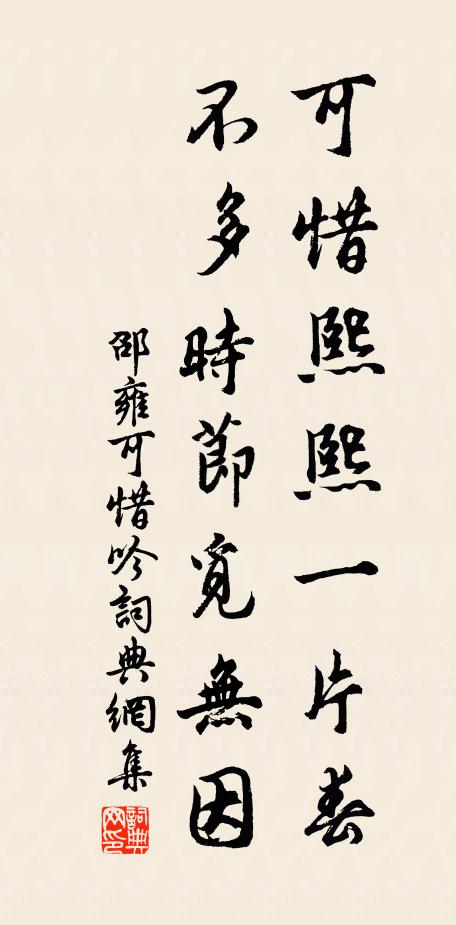 可惜熙熙一片春
不多時節覓無因
邵雍可惜吟詞典網集
詞典網印